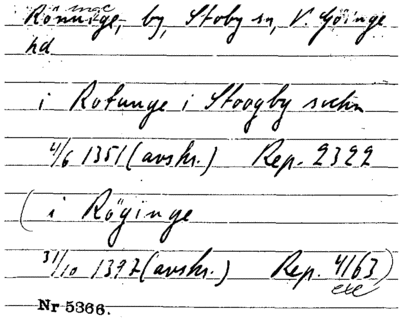 Rönninge, by, Stoby sn, V. Göinge
hd
i Rotunge i Stoogby sockn
4/6 1351 (avskr.) Rep. 2322
(i Röginge
31/10 1397 (avskr.) Rep. 4163)
Nr 5366.